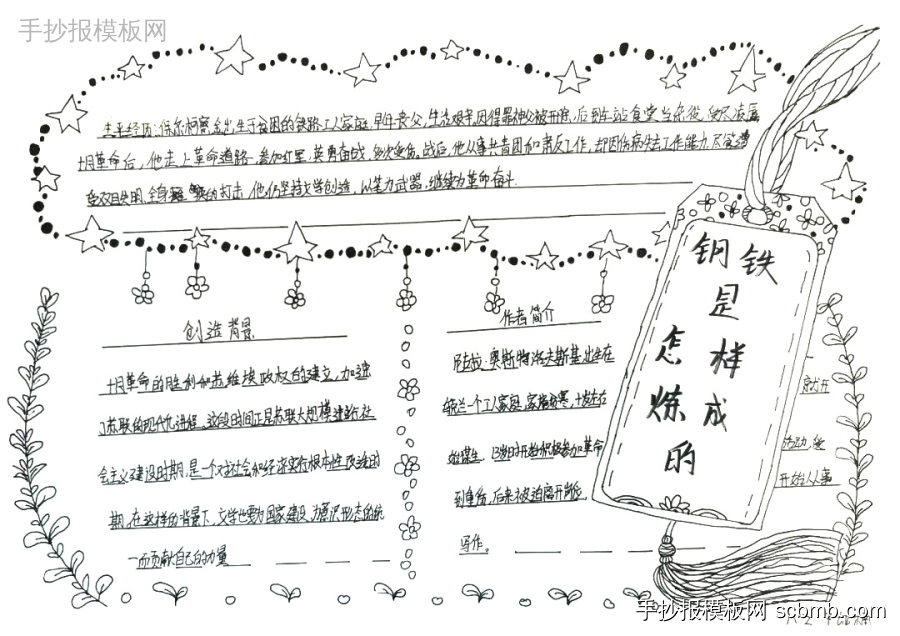 手抄报模板网
生平经历：保尔·柯察金出生于贫困的铁路工人家庭，早年丧父，生活艰辛，因得罪神父被开除，后到车站食堂当杂役，受尽凌辱
十月革命后，他走上革命道路，参加红军，英勇奋战，多次受伤。战后，他从事共青团和肃反工作，却因伤病失去工作能力。尽管遭
受双目失明、全身瘫痪的打击，他仍坚持文学创造，以笔为武器，继续为革命奋斗.
钢铁
是
怎样
炼成
的
创造背景
十月革命的胜利和苏维埃政权的建立，加速
了苏联的现代化进程。这段时间正是苏联大规模进行社
会主义建设时期，是一个对社会和经济实行根本性改造的时
期。在这样的背景下，文学也要为国家建设，为意识形态的统
一而贡献自己的力量
作者简介
尼古拉·奥斯特洛夫斯基，出生在
乌克兰一个工人家庭，家境贫寒，十岁左右
就开
始谋生，13岁时开始积极参加革命
活动，
到重伤，后来被迫离开
开始从事
写作。
手抄报模板网 scbmb.com